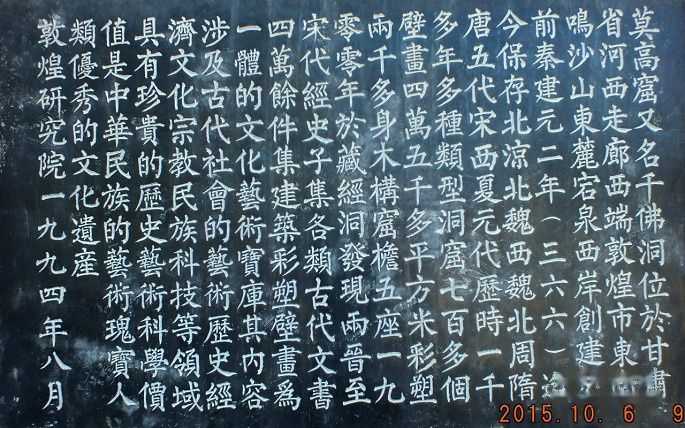 莫高窟又名千佛洞位於甘肅
省河西走廊西端敦煌市東
鳴沙山東麓宕泉西岸創建
前秦建元二年(三六六)迄
今保存北涼北魏西魏北周隋
唐五代宋西夏元代歷時一千
多年多種類型洞窟七百多個
壁畫四萬五千多平方米彩塑
兩千多身木構窟檐五座一九
零零年於藏經洞發現兩晉至
宋代經史子集各類古代文書
四萬餘件集建築彩塑壁畫爲
一體的文化藝術寶庫其內容
涉及古代社會的藝術歷史經
濟文化宗教民族科技等領域
具有珍貴的歷史藝術科學價
值是中華民族的藝術瑰寶人
類優秀的文化遺產
敦煌研究院一九九四年八月
2015.10. 6 9